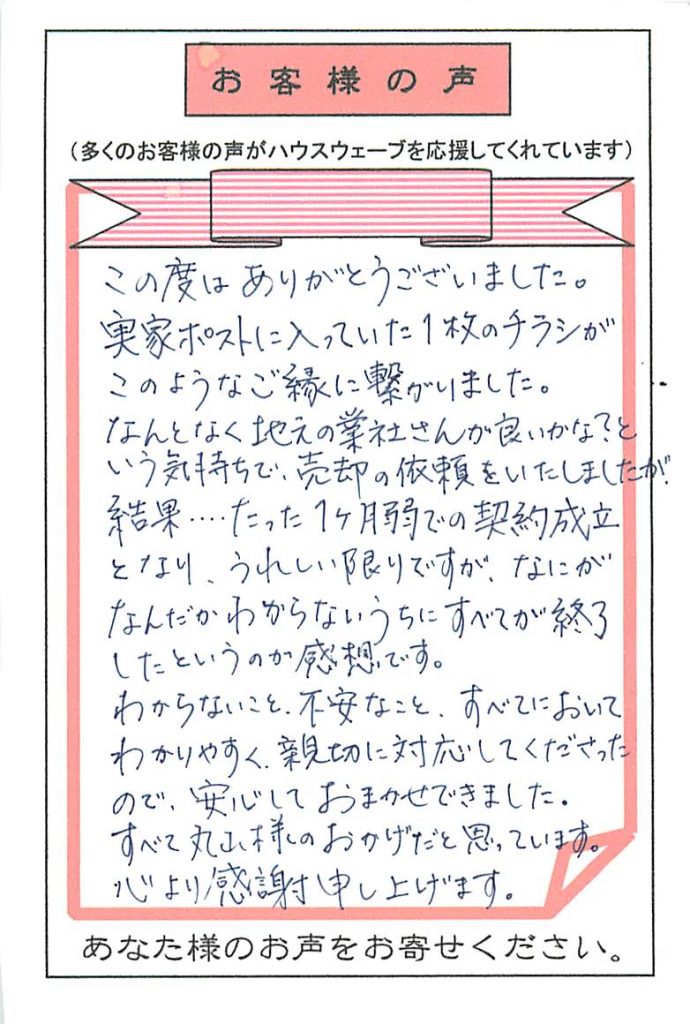 お客様の声
（多くのお客様の声がハウスウェーブを応援してくれています）
この度は ありがとうございました。
実家ポストに入っていた1枚のチラシが
このようなご縁に繋がりました。
なんとなく地元の業社さんが良いかな？と
いう気持ちで、売却の依頼をいたしましたが、
結果‥‥たった1ヶ月弱での契約成立
となり、うれしい限りですが、なにが
なんだかわからないうちにすべてが終了
したというのが感想です。
わからないこと、不安なこと、すべてにおいて
わかりやすく、親切に対応してくださった
ので、安心して おまかせできました。
すべて丸山様のおかげだと思っています。
心より感謝申し上げます。
あなた様のお声をお寄せください。